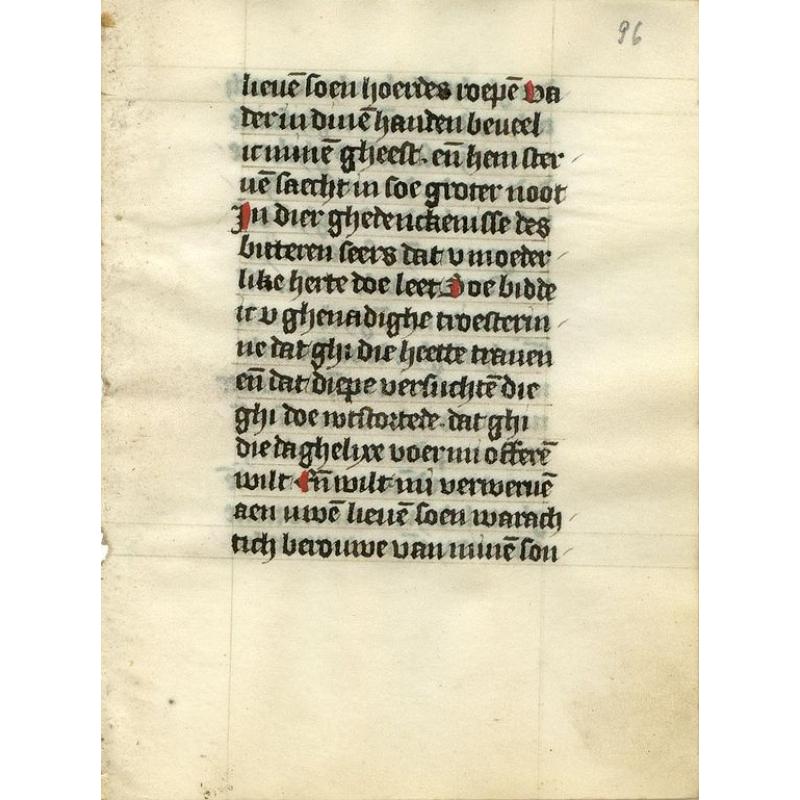 96
lieuē soen hoerdes roepē va
der in dinē handen beueel
ic minē gheest. eñ hem ster
uē saecht in soe groter noot
In dier ghedenckenisse des
bitteren seers dat v moeder
like herte doe leet Soe bidde
ic v ghenadighe troesterin
ne dat ghi die heette tranen
eñ dat diepe versuchtē die
ghi doe wtstortede. dat ghi
die daghelixe voer mi offerē
wilt. Eñ wilt mi verweruē
aen uwē lieuē soen warach
tich berouwe van minē son